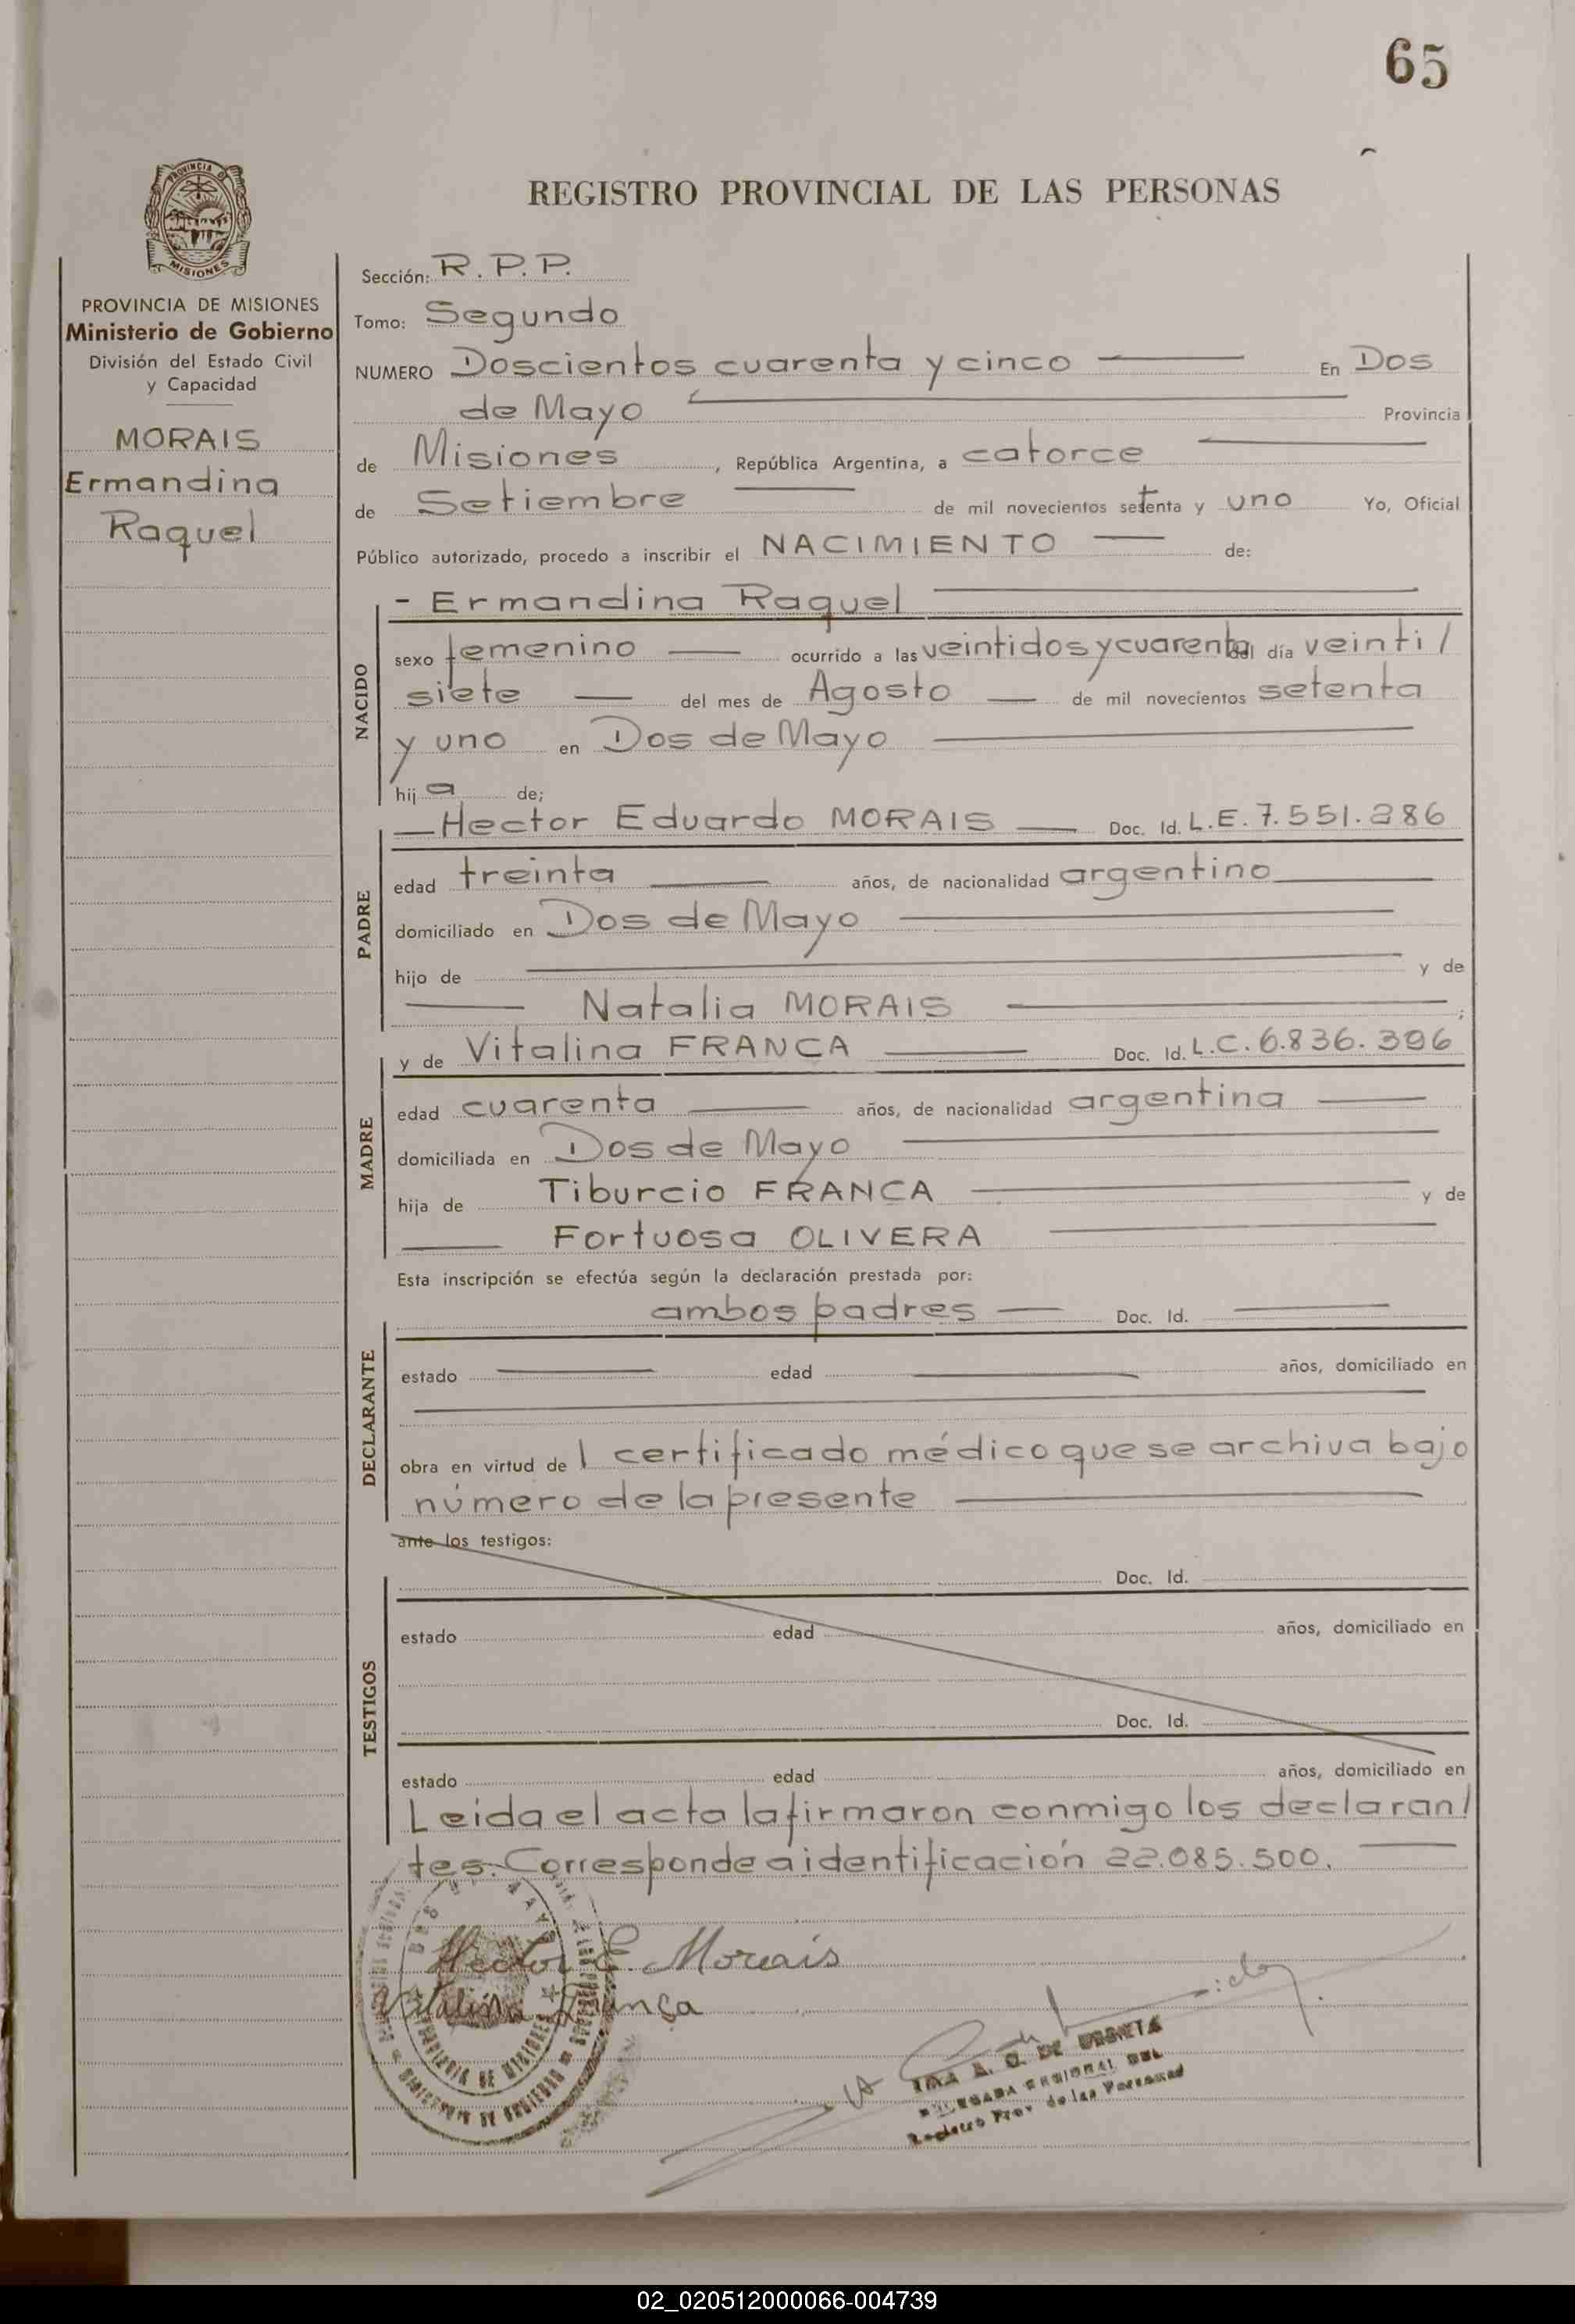 65
PROVINCIA DE
MISIONES
REGISTRO PROVINCIAL DE LAS PERSONAS
PROVINCIA DE MISIONES
Ministerio de Gobierno
División del Estado Civil
y Capacidad
MORAIS
Ermandina
Raquel
Sección: R.P.P.
Tomo: Segundo
NUMERO Doscientos cuarenta y cinco En Dos
de Mayo Provincia
de Misiones, República Argentina, a catorce
de Setiembre de mil novecientos setenta y uno Yo, Oficial
Público autorizado, procedo a inscribir el NACIMIENTO de:
- Ermandina Raquel
NACIDO
sexo femenino ocurrido a las veintidos y cuarenta del día veinti/
siete del mes de Agosto de mil novecientos setenta
y uno en Dos de Mayo
hij a de;
Hector Eduardo MORAIS Doc. Id. L.E. 7.551.286
PADRE
edad treinta años, de nacionalidad argentino
domiciliado en Dos de Mayo
hijo de y de
Natalia MORAIS ;
y de Vitalina FRANCA Doc. Id. L.C. 6.836.396
MADRE
edad cuarenta años, de nacionalidad argentina
domiciliada en Dos de Mayo
hija de Tiburcio FRANCA y de
Fortuosa OLIVERA
Esta inscripción se efectúa según la declaración prestada por:
ambos padres Doc. Id.
DECLARANTE
estado edad años, domiciliado en
obra en virtud de 1 certificado médico que se archiva bajo
número de la presente
ante los testigos:
Doc. Id.
TESTIGOS
estado edad años, domiciliado en
Doc. Id.
estado edad años, domiciliado en
Leida el acta la firmaron conmigo los declaran/
tes. Corresponde a identificación 22.085.500.
Hector E. Morais
Vitalina França
PROVINCIA DE MISIONES
DE URRETA
DELEGADA REGIONAL DEL
Registro Prov. de las Personas
02_020512000066-004739